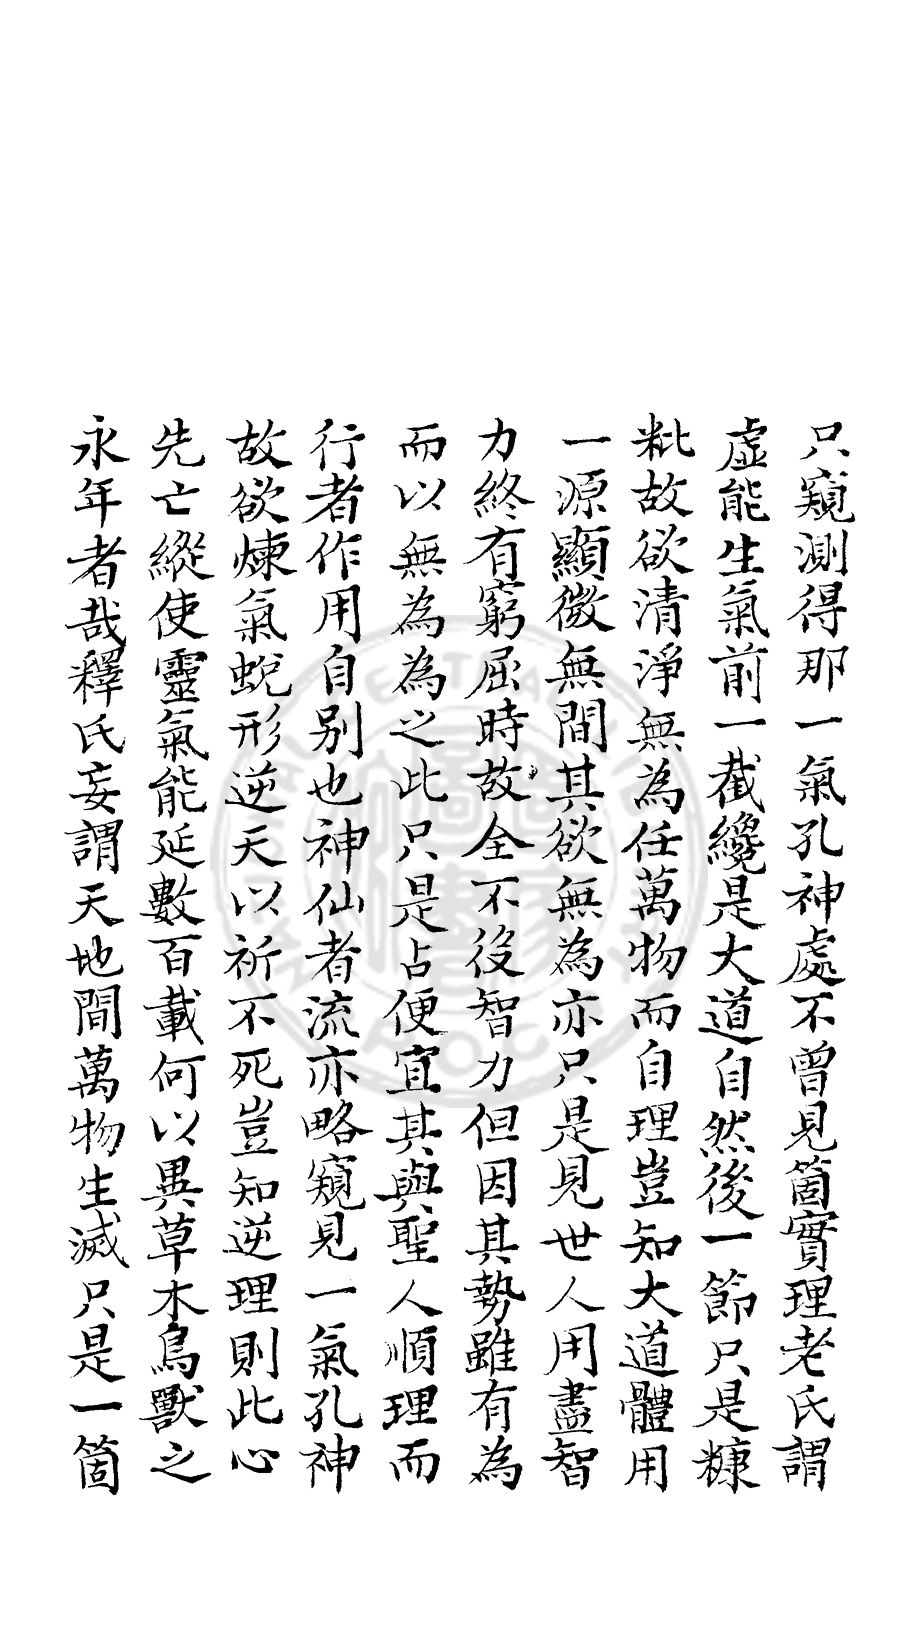 只窺測得那一氣孔神處不曾見箇實理老氏謂
虛能生氣前一截纔是大道自然後一節只是糠
粃故欲清淨無為任萬物而自理豈知大道體用
一源顯微無間其欲無為亦只是見世人用盡智
力終有窮屈時故全不役智力但因其勢雖有為
而以無為為之此只是占便宜其與聖人順理而
行者作用自別也神仙者流亦略窺見一氣孔神
故欲煉氣蛻形逆天以祈不死豈知逆理則此心
先亡縱使靈氣能延數百載何以異草木鳥獸之
永年者哉釋氏妄謂天地間萬物生滅只是一箇